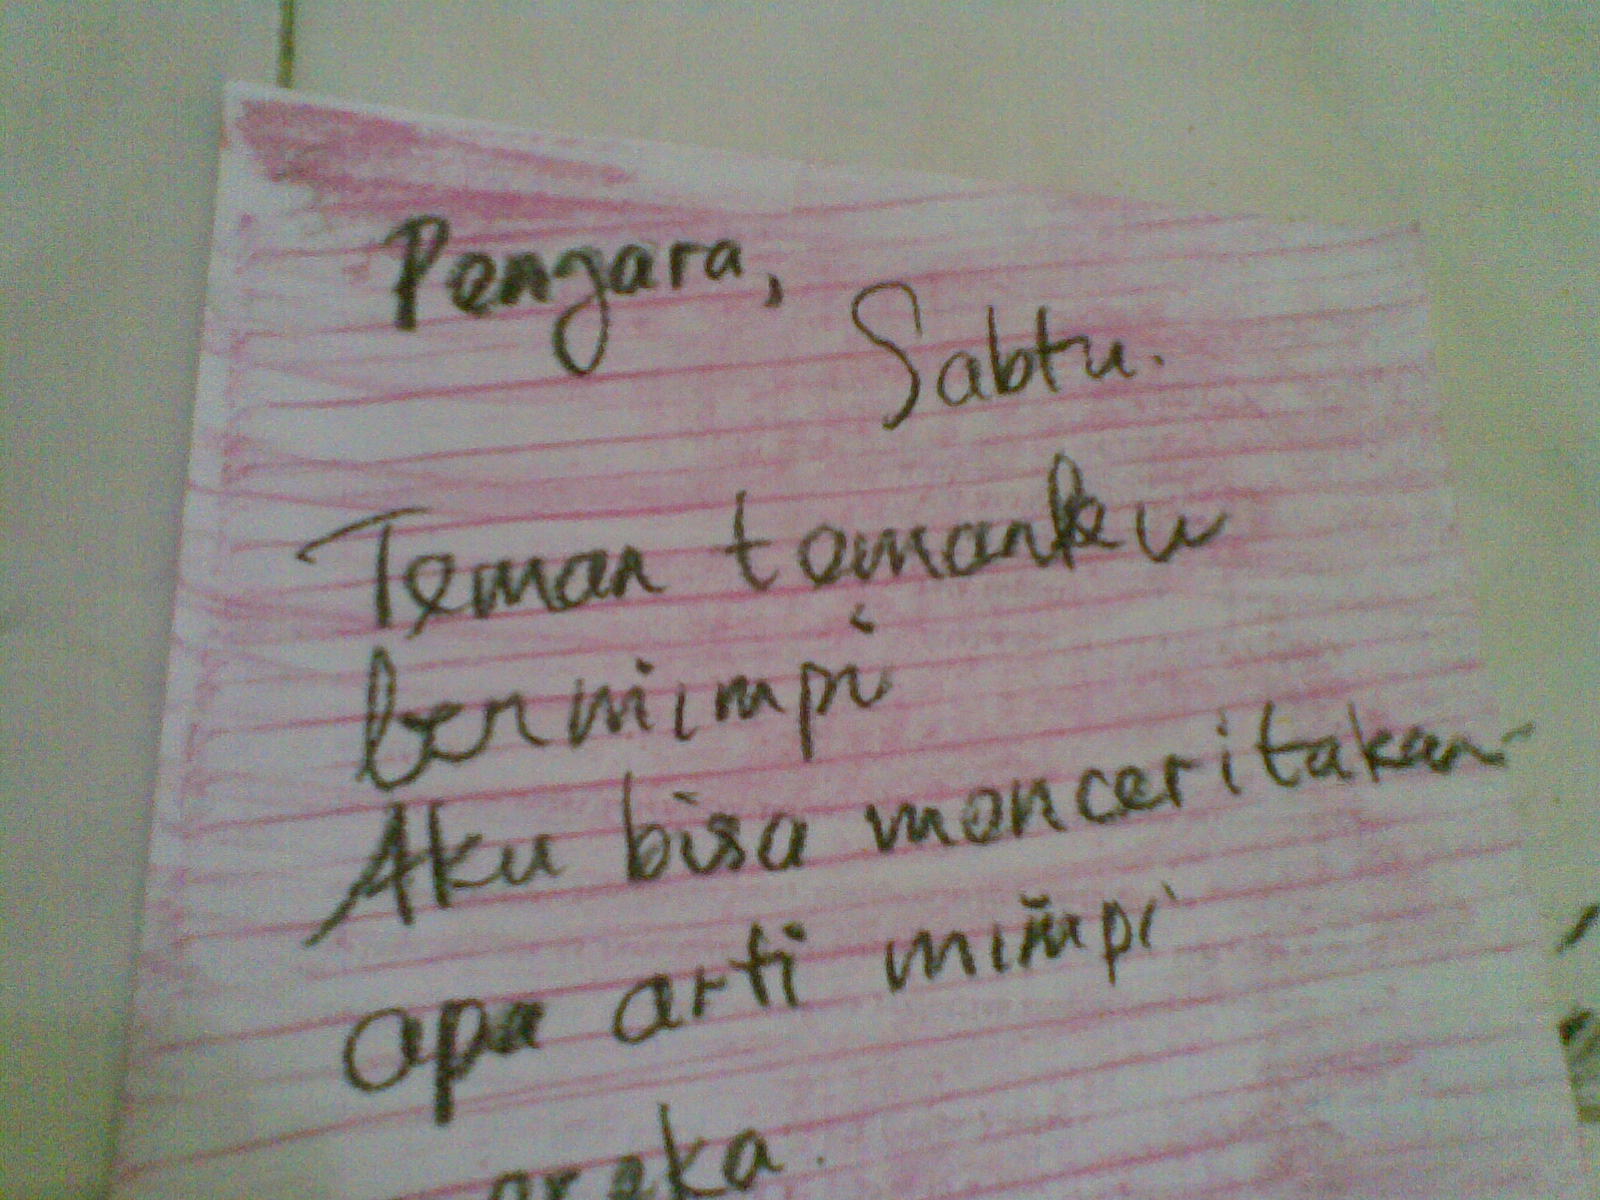 Pengara,
Sabtu.
Teman temanku
bermimpi
Aku bisa menceritakan
apa arti mimpi